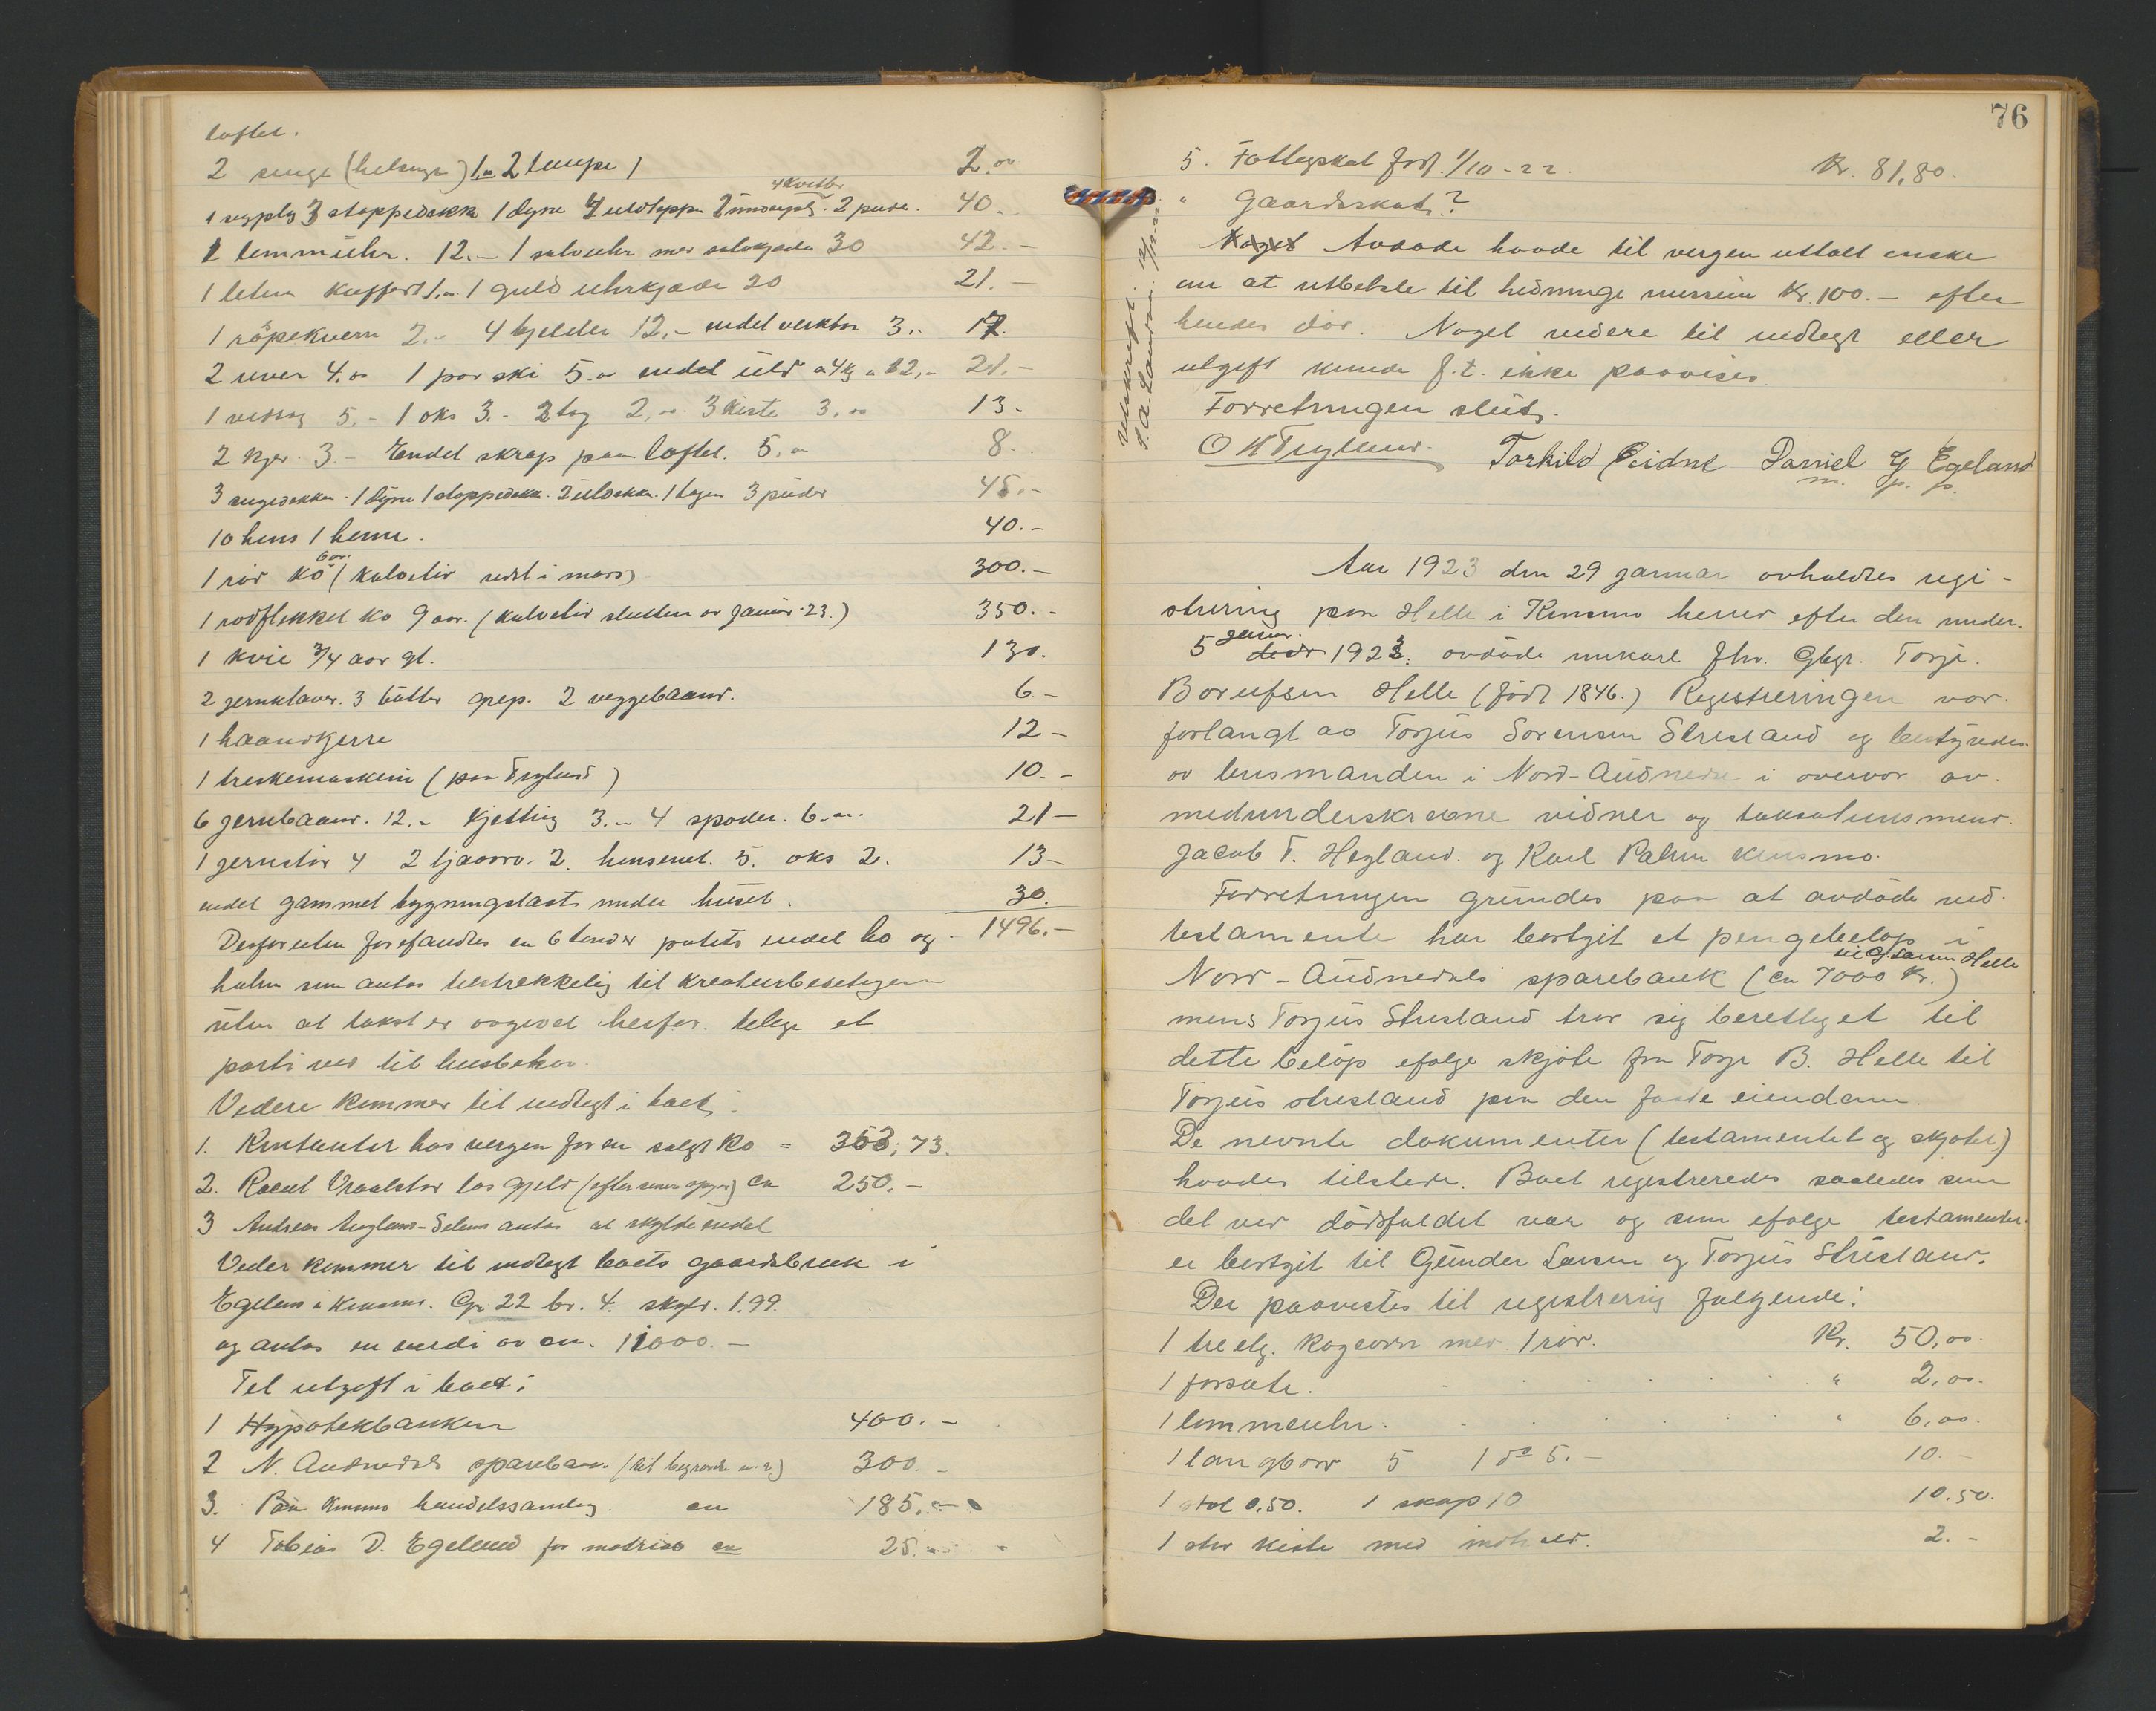 loftet.
2 senge (helsenge) 1,00 2 lampe 1 2.00
4 kvitler
1 3 stoppedækk 1 dyne 4 uldtæppe 2 2 puder. 40.
1 lommeuhr. 12.- 1 sølvuhr med sølvkjæde 30 42.-
1 liten kuffert 1.00 1 guld uhrkjæde 20 21.-
1 röpekvern 2.- 4 bjelder 12.- endel verktøi 3.- 17.
2 river 4.00 1 par ski 5.00 endel uld a 4 kg a 12,- 21.-
1 vedsag 5.- 1 øks 3.- 2 sag 2,00. 3 kiste 3.00 13.-
2 kjer 3.- Endel skrap paa loftet. 5.00 8.-
3 sengedekken. 1 dyne 1 stoppedekk. 2 ulddekk. 1 lagen 3 puder 45.-
10 höns 1 hane. 40.-
6 aar.
1 rød kö (kalvetid sidst i mars) 300.-
1 rødflekket ko 9 aar. (kalvetid slutten av januar 23.) 350.-
1 kvie 3/4 aar gl. 130.
2 jernklaver. 3 bøtter grep. 2 veggebaand. 6.-
1 haandkjerre 12-
1 treskemaskin (paa Tryland) 10.-
6 jernbaand. 12.- kjetting 3.- 4 spader. 6.00. 21-
1 jernstör 4 2 ljaaorv. 2. hønsenet. 5. øks 2. 13-
endel gammel bygningslast under huset. 30.
Desforuten forefandtes ca 6 tønder potets endel hö og 1496.-
halm som antas tilstrekkelig til kreaturbesetningen
uten at takst er avgivet herfor. Likesaa et
parti ved til husbehov.
Videre kommer til indtegt i boet:
1. Kontanter hos vergen for en solgt ko = 353,73.
2. Raeul Vraalstad los gjeld (efter senere opgjør) ca 250.-
3 Andreas Øiglans-Selans antas at skylde endel
Vider kommer til indtegt boets gaardsbruk i
Egeland i Konsmo. Gr. 22 br. 4. skyld. 1.99.
og antas en verdi av ca. 11000.-
Til utgift i boet:
1 Hypotekbanken 400.-
2 N. Audnedals sparebank. (til begravelse m.v.) 300.-
3. Paa Konsmo handelssamlag. ca 185.-
4 Tobias D. Egeland for madrias ca 25.-
76
5. Fattigskat forf. 1/10-22. Kr. 81,80.
" Gaardsskat?
Noget Avdøde havde til vergen uttalt ønske
om at utbetale til hedninge missionen Kr. 100.- efter
hendes død. Noget videre til indtegt eller
utgift kunde f.t. ikke paavises.
Forretningen slut.
O K Tryland. Torkild Eidne Daniel G Egeland
m. p. p.
Utskrift.
Aar 1923 den 29 januar avholdtes regi-
strering paa Helle i Konsmo herred efter den under
januar
5 des 1923. avdöde unkarl fhv. Gbgr. Torje
Borufsen Helle (født 1846.) Registreringen var
forlangt av Torjus Sørensen Strisland og bestyredes
av lensmanden i Nord-Audnedal i overvær av
medunderskrevne vidner og takstlensmend.
Jacob T. Hægland. og Karl Palm Konsmo.
Forretningen grundes paa at avdøde ved
testamente har bortgit et pengebeløp i
til G. Larsen Helle
Nord-Audnedals sparebank (ca 7000 kr.)
mens Torjus Strisland tror sig berettiget til
dette beløp ifølge skjøte fra Torje B. Helle til
Torjus Strisland paa den faste eiendom.
De nevnte dokumenter (testamentet og skjøtet)
havdes tilstede. Boet registreredes saaledes som
det ved dödsfaldet var og som ifølge testamentet
er bortgit til Gunder Larsen og Torjus Strisland.
Der paavistes til registrering følgende:
1 treetg. kogeovn med 1 rør. Kr. 50,00.
1 forsate. " 2,00.
1 lommeuhr. " 6,00.
1 langbord 5 1 do 5.- 10.-
1 stol 0.50. 1 skap 10 10.50.
1 stor kiste med indhold. 2.-